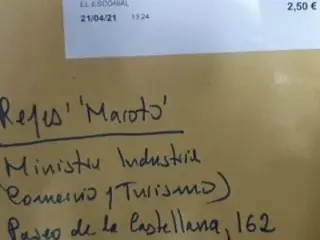 EL ESCORIAL
2,50 €
21/04/21 13:24
Reyes 'Maroto'
Ministra Industria
Comercio y Turismo)
Paseo de la Castellana, 162